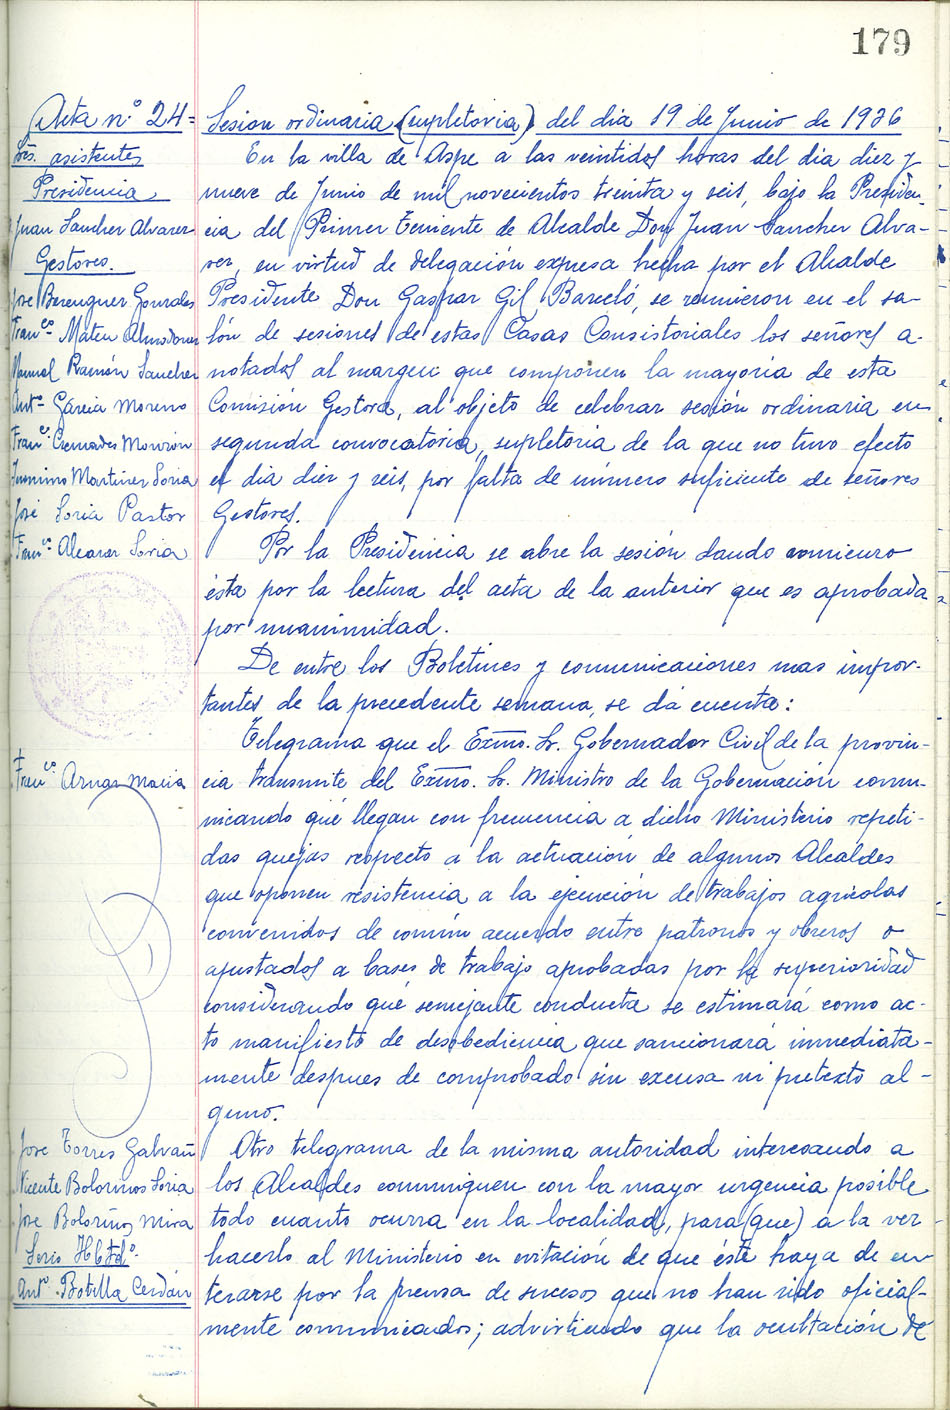 179
Acta nº 24=
Sres. asistentes
Presidencia
Juan Sancher Alvarer
Gestores.
Jose Berenguer Gonzales
Franco Mateu Almodovar
Manuel Ramón Sancher
Anto García Moreno
Franco Cremades Monzón
Martiner Soria
José Soria Pastor
Franco Alcarar Soria
Franco Arnar Maciá
Jose Torres Galvañ
Vicente Bolorinos Soria
Jose Boloriños Mira
Serio Hbtdo.
Anto Botella Cerdán
Sesion ordinaria (supletoria) del dia 19 de Junio de 1936
En la villa de Aspe a las veintidos horas del dia diez y
nueve de Junio de mil novecientos treinta y seis, bajo la Presiden-
cia del Primer Teniente de Alcalde Don Juan Sancher Alva-
rer, en virtud de delegación expresa hecha por el Alcalde
Presidente Don Gaspar Gil Barceló, se reunieron en el sa-
lón de sesiones de estas Casas Consistoriales los señores a-
notados al margen que componen la mayoria de esta
Comisión Gestora, al objeto de celebrar sesión ordinaria en
segunda convocatoria, supletoria de la que no tuvo efecto
el dia diez y seis, por falta de número suficiente de señores
Gestores.
Por la Presidencia se abre la sesión dando comienzo
ésta por la lectura del acta de la anterior que es aprobada
por unanimidad.
De entre los Boletines y comunicaciones mas impor-
tantes de la precedente semana, se dá cuenta:
Telegrama que el Exmo. Sr. Gobernador Civil de la provin-
cia transmite del Exmo. Sr. Ministro de la Gobernación comu-
nicando qué llegan con frecuencia a dicho Ministerio repeti-
das quejas respecto a la actuación de algunos Alcaldes
que oponen resistencia a la ejecución de trabajos agricolas
convenidos de común acuerdo entre patronos y obreros o
ajustados a bases de trabajo aprobadas por la superioridad
considerando qué semejante conducta se estimará como ac-
to manifiesto de desobediencia que sancionará inmediata-
mente despues de comprobado sin excusa ni pretexto al-
guno.
Otro telegrama de la misma autoridad interesando a
los Alcaldes comuniquen con la mayor urgencia posible
todo cuanto ocurra en la localidad, para (que) a la ver
hacerlo al Ministerio en evitación de que éste haya de en-
terarse por la prensa de sucesos que no han sido oficial-
mente comunicados; advirtiendo que la ocultación de